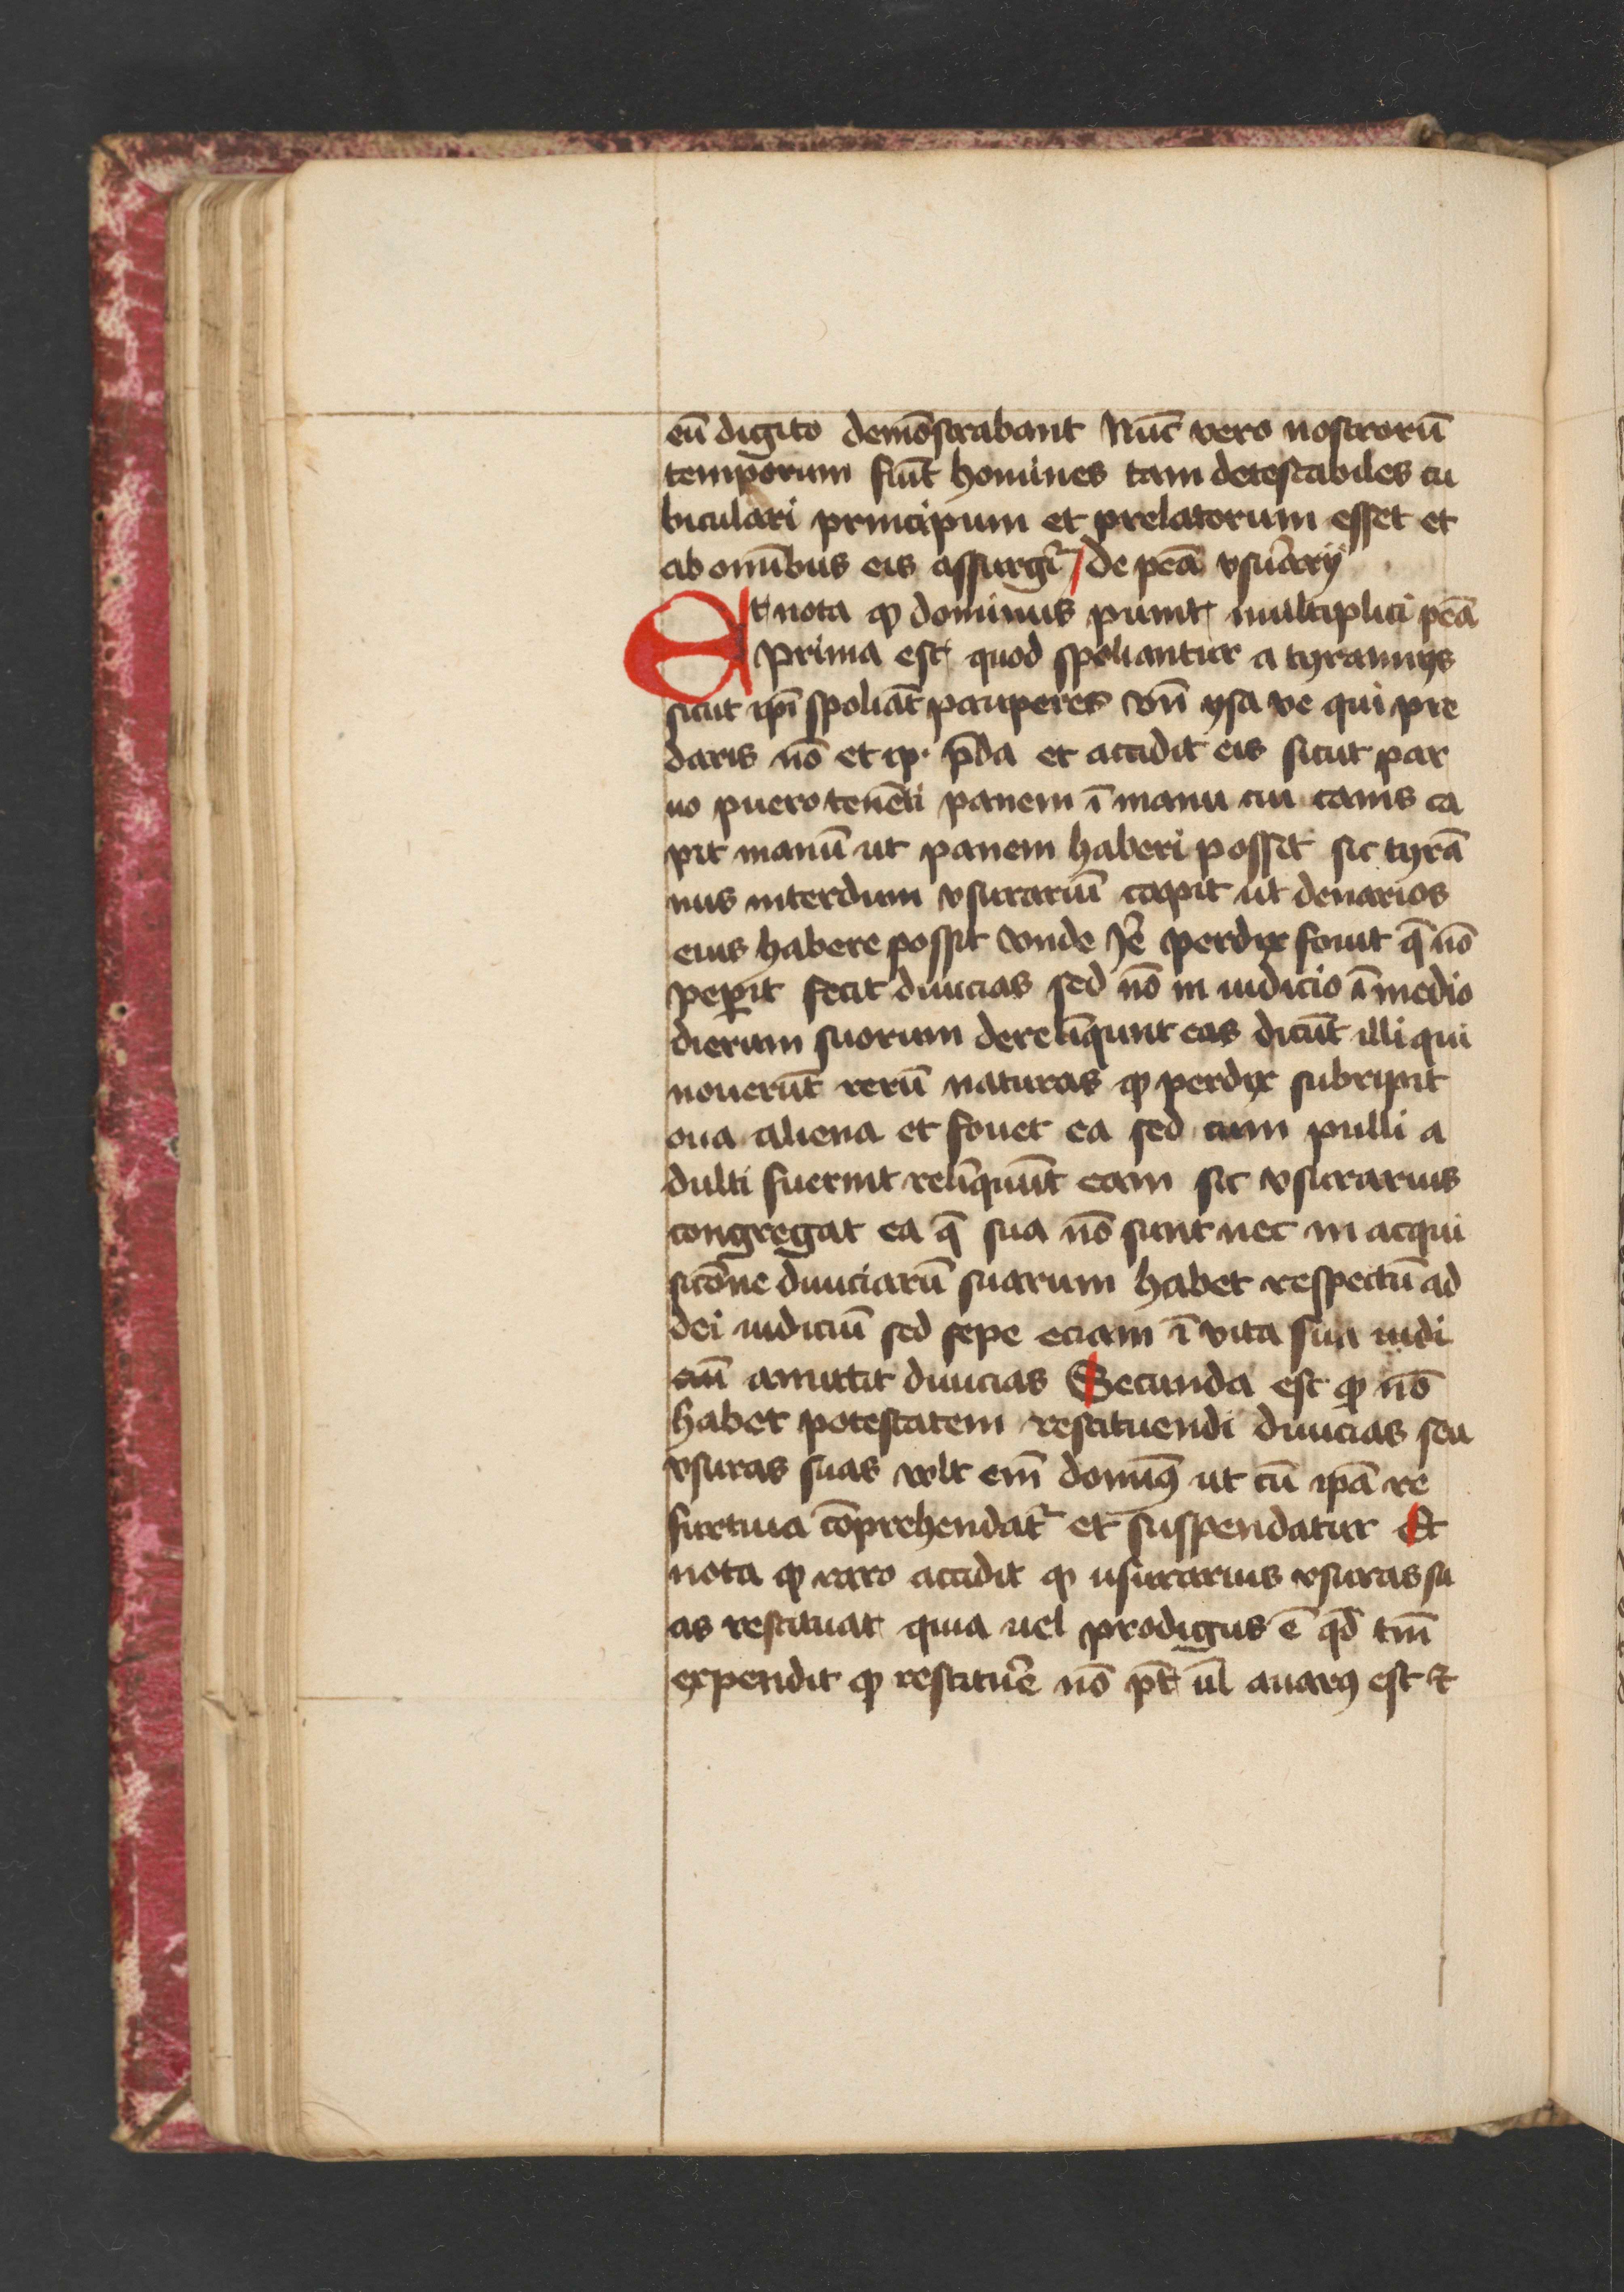 eū digito demōstrabant Nūc vero nostrorū
temporum fiūt homines tam detestabiles cu
biculari principum et prelatorum esset et
ab omībus eis assurgr̄ / de pēa vsurarij
Et nota ꝙ dominus punit multiplici pēa
prima est quod spoliantur a tyrannys
sicut ip̄i spoliāt pauperes vn̄ ysa ve qui pre
daris nō et ip̄ p̄da et accidit eis sicut par
uo puero tenēti panem ī manu cui canis ca
pit manū ut panem haberi posset sic tyrā
nus interdum vsurariū capit ut denarios
eius habere possit vnde Je͛ perdix fouit q̄ nō
peperit fecit diuicias sed nō in iudicio ī medio
dierum suorum derelīqunt eas dicūt illi qui
nouerūt rerū naturas ꝙ perdix subripit
oua aliena et fouet ea sed cum pulli a
dulti fuerint relīquūt eam sic vsurarius
congregat ea q̄ sua nō sunt nec in acqui
sicōne diuiciarū suarum habet respectū ad
dei iudiciū sed sepe eciam ī vita sua iudi
ciū amittit diuicias Secunda est ꝙ nō
habet potestatem restituendi diuicias seu
vsuras suas vult em̄ domīꝰ ut cū ip̄a re
furtiua cōprehendat᷑ et suspendatur Et
nota ꝙ raro accidit ꝙ usurarius vsuras su
as restituat quia uel prodigus ē qd̄ tm̄
expendit ꝙ restitue͛ nō pt̄ ul̄ auarꝰ est ⁊